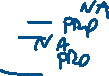 NA
— PRP
— NA
PRO